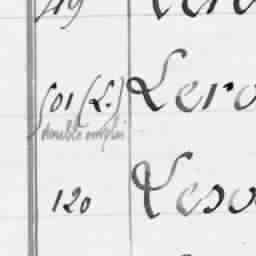 501 (L.) Lero
double emploi
120 Leso